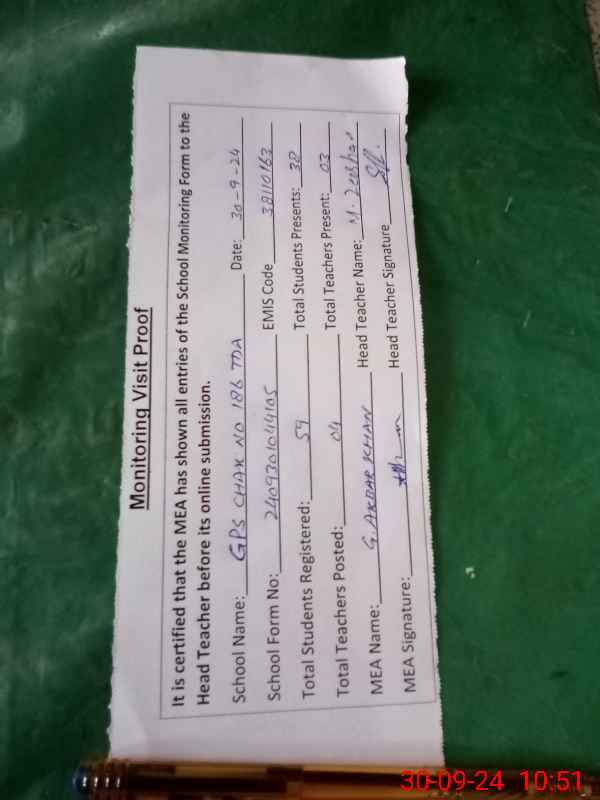 Monitoring Visit Proof
It is certified that the MEA has shown all entries of the School Monitoring Form to the
Head Teacher before its online submission.
School Name: GPS CHAK NO 186 TDA Date: 30-9-24
School Form No: EMIS Code 38110163
Total Students Registered: 59 Total Students Presents: 38
Total Teachers Posted: 04 Total Teachers Present: 03
MEA Name: G. AKBAR KHAN Head Teacher Name: M. Zeeshan
MEA Signature: Head Teacher Signature
30-09-24 10:51